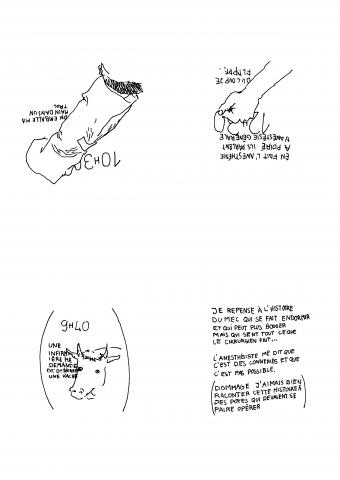 ON EMBALLE MA
MAIN DANS UN
TRUC
10H30
EN FAIT L'ANESTHÉSIE
A FOIRÉ ILS PARLENT
D'ANESTHÉSIE GÉNÉRALE
DU COUP JE
FLIPPE..
9H40
UNE
INFIRM
IÈRE ME
DEMANDE
DE DESSINER
UNE VACHE
JE REPENSE À L'HISTOIRE
DU MEC QUI SE FAIT ENDORMIR
ET QUI PEUT PLUS BOUGER
MAIS QUI SENT TOUT CE QUE
LE CHIRURGIEN FAIT...
L'ANESTHÉSISTE ME DIT QUE
C'EST DES CONNERIES ET QUE
C'EST PAS POSSIBLE.
(DOMMAGE J'AIMAIS BIEN
RACONTER CETTE HISTOIRE À
DES POTES QUI DEVAIENT SE
FAIRE OPÉRER)